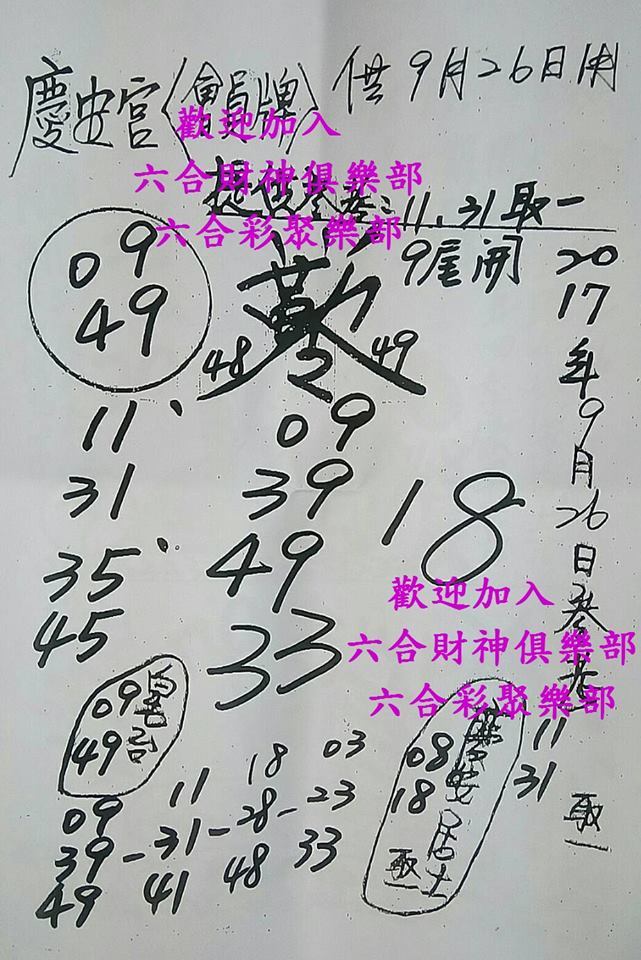 慶安宮〈會員牌〉供9月26日用
歡迎加入
六合財神俱樂部
六合彩聚樂部
提供參考:11.31取一
9尾開
09
49
48 49
2017年9月26日參考
11
31
取一
11、
31
35、
45
09
39
49
33
18
歡迎加入
六合財神俱樂部
六合彩聚樂部
09
49
08
18
居士
取一
09 11 18 03
39-31-28-23
49 41 48 33